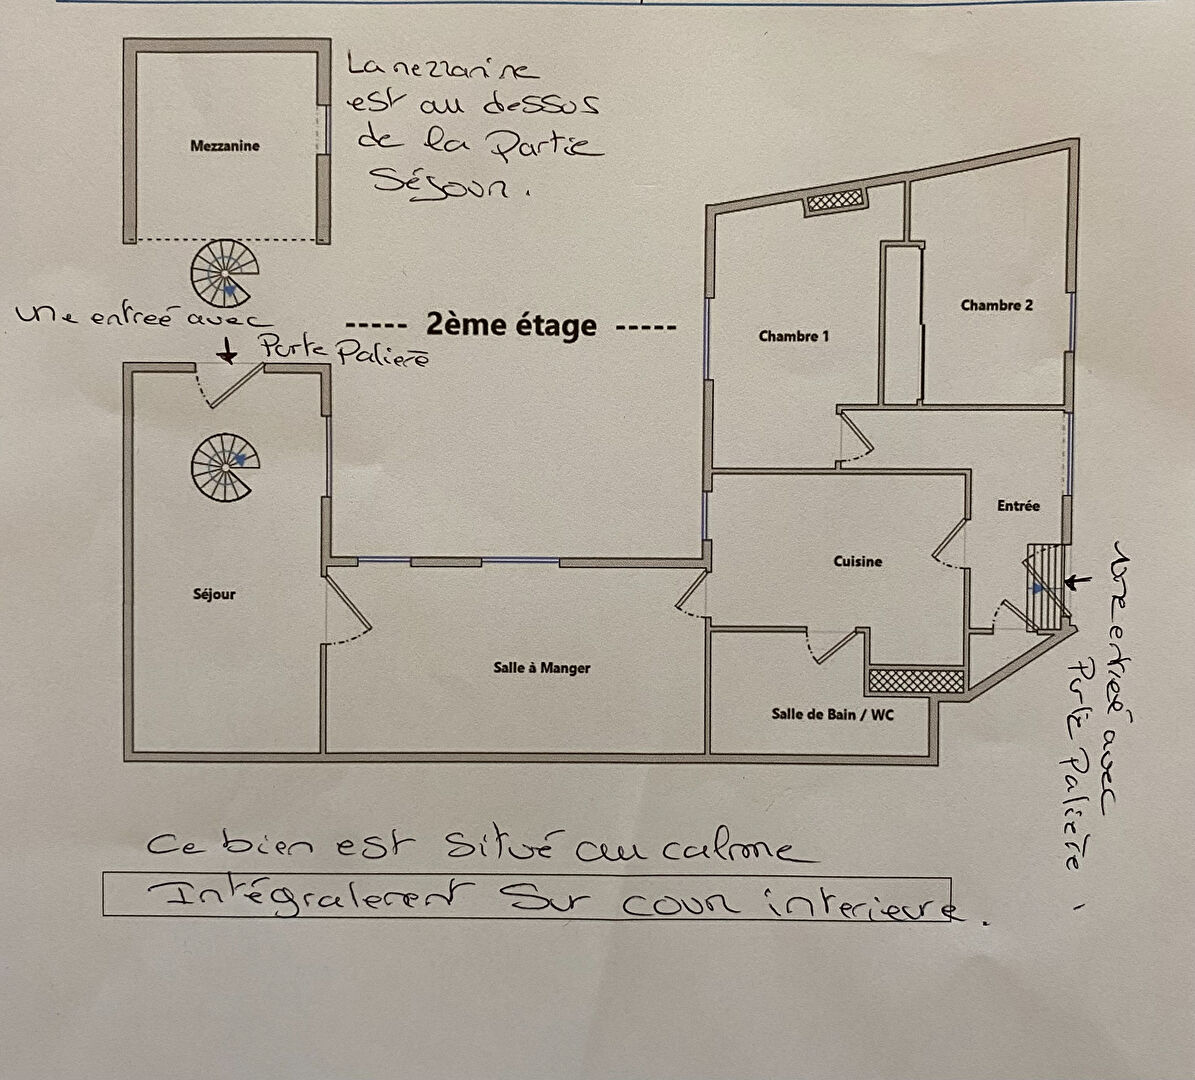 La mezzanine
est au dessus
de la Partie
Séjour.
Mezzanine
une entreé avec
Porte Paliere
----- 2ème étage -----
Chambre 1
Chambre 2
Entrée
Cuisine
Séjour
Salle à Manger
Salle de Bain / WC
une entreé avec
Porte Palière
Ce bien est situé au calme
Intégralement Sur cour interieure.